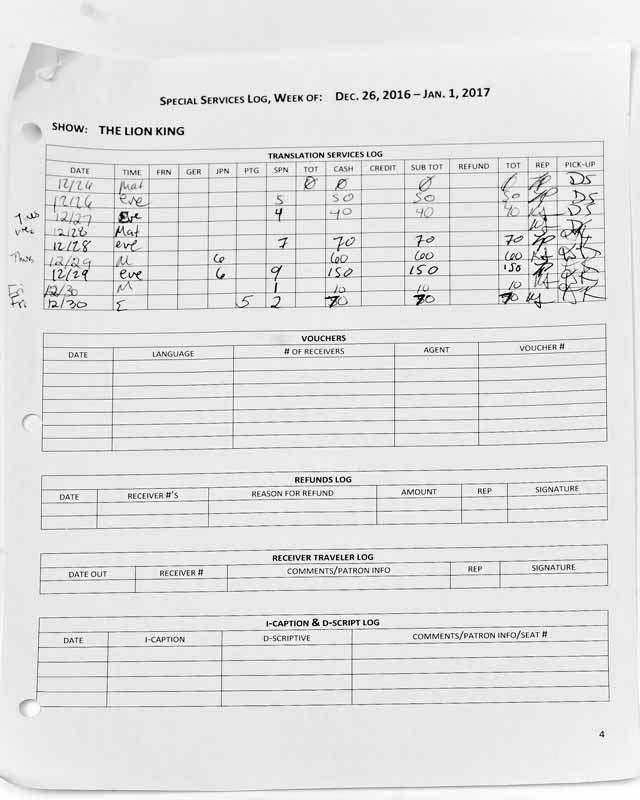 SPECIAL SERVICES LOG, WEEK OF: DEC. 26, 2016 – JAN. 1, 2017
SHOW: THE LION KING
TRANSLATION SERVICES LOG
DATE TIME FRN GER JPN PTG SPN TOT CASH CREDIT SUB TOT REFUND TOT REP PICK-UP
12/26 Mat 0 0 0 0 DS
12/26 eve 5 50 50 50 DS
Tues 12/27 eve 4 40 40 40 KJ DS
12/28 Mat KJ DS
12/28 eve 7 70 70 70
Thurs 12/29 M 6 60 60 60 KJ
12/29 eve 6 9 150 150 150
Fri 12/30 M 1 10 10 10 KJ
Fri 12/30 E 5 2 70 70 70 KJ
VOUCHERS
DATE LANGUAGE # OF RECEIVERS AGENT VOUCHER #
REFUNDS LOG
DATE RECEIVER #'S REASON FOR REFUND AMOUNT REP SIGNATURE
RECEIVER TRAVELER LOG
DATE OUT RECEIVER # COMMENTS/PATRON INFO REP SIGNATURE
I-CAPTION & D-SCRIPT LOG
DATE I-CAPTION D-SCRIPTIVE COMMENTS/PATRON INFO/SEAT #
4